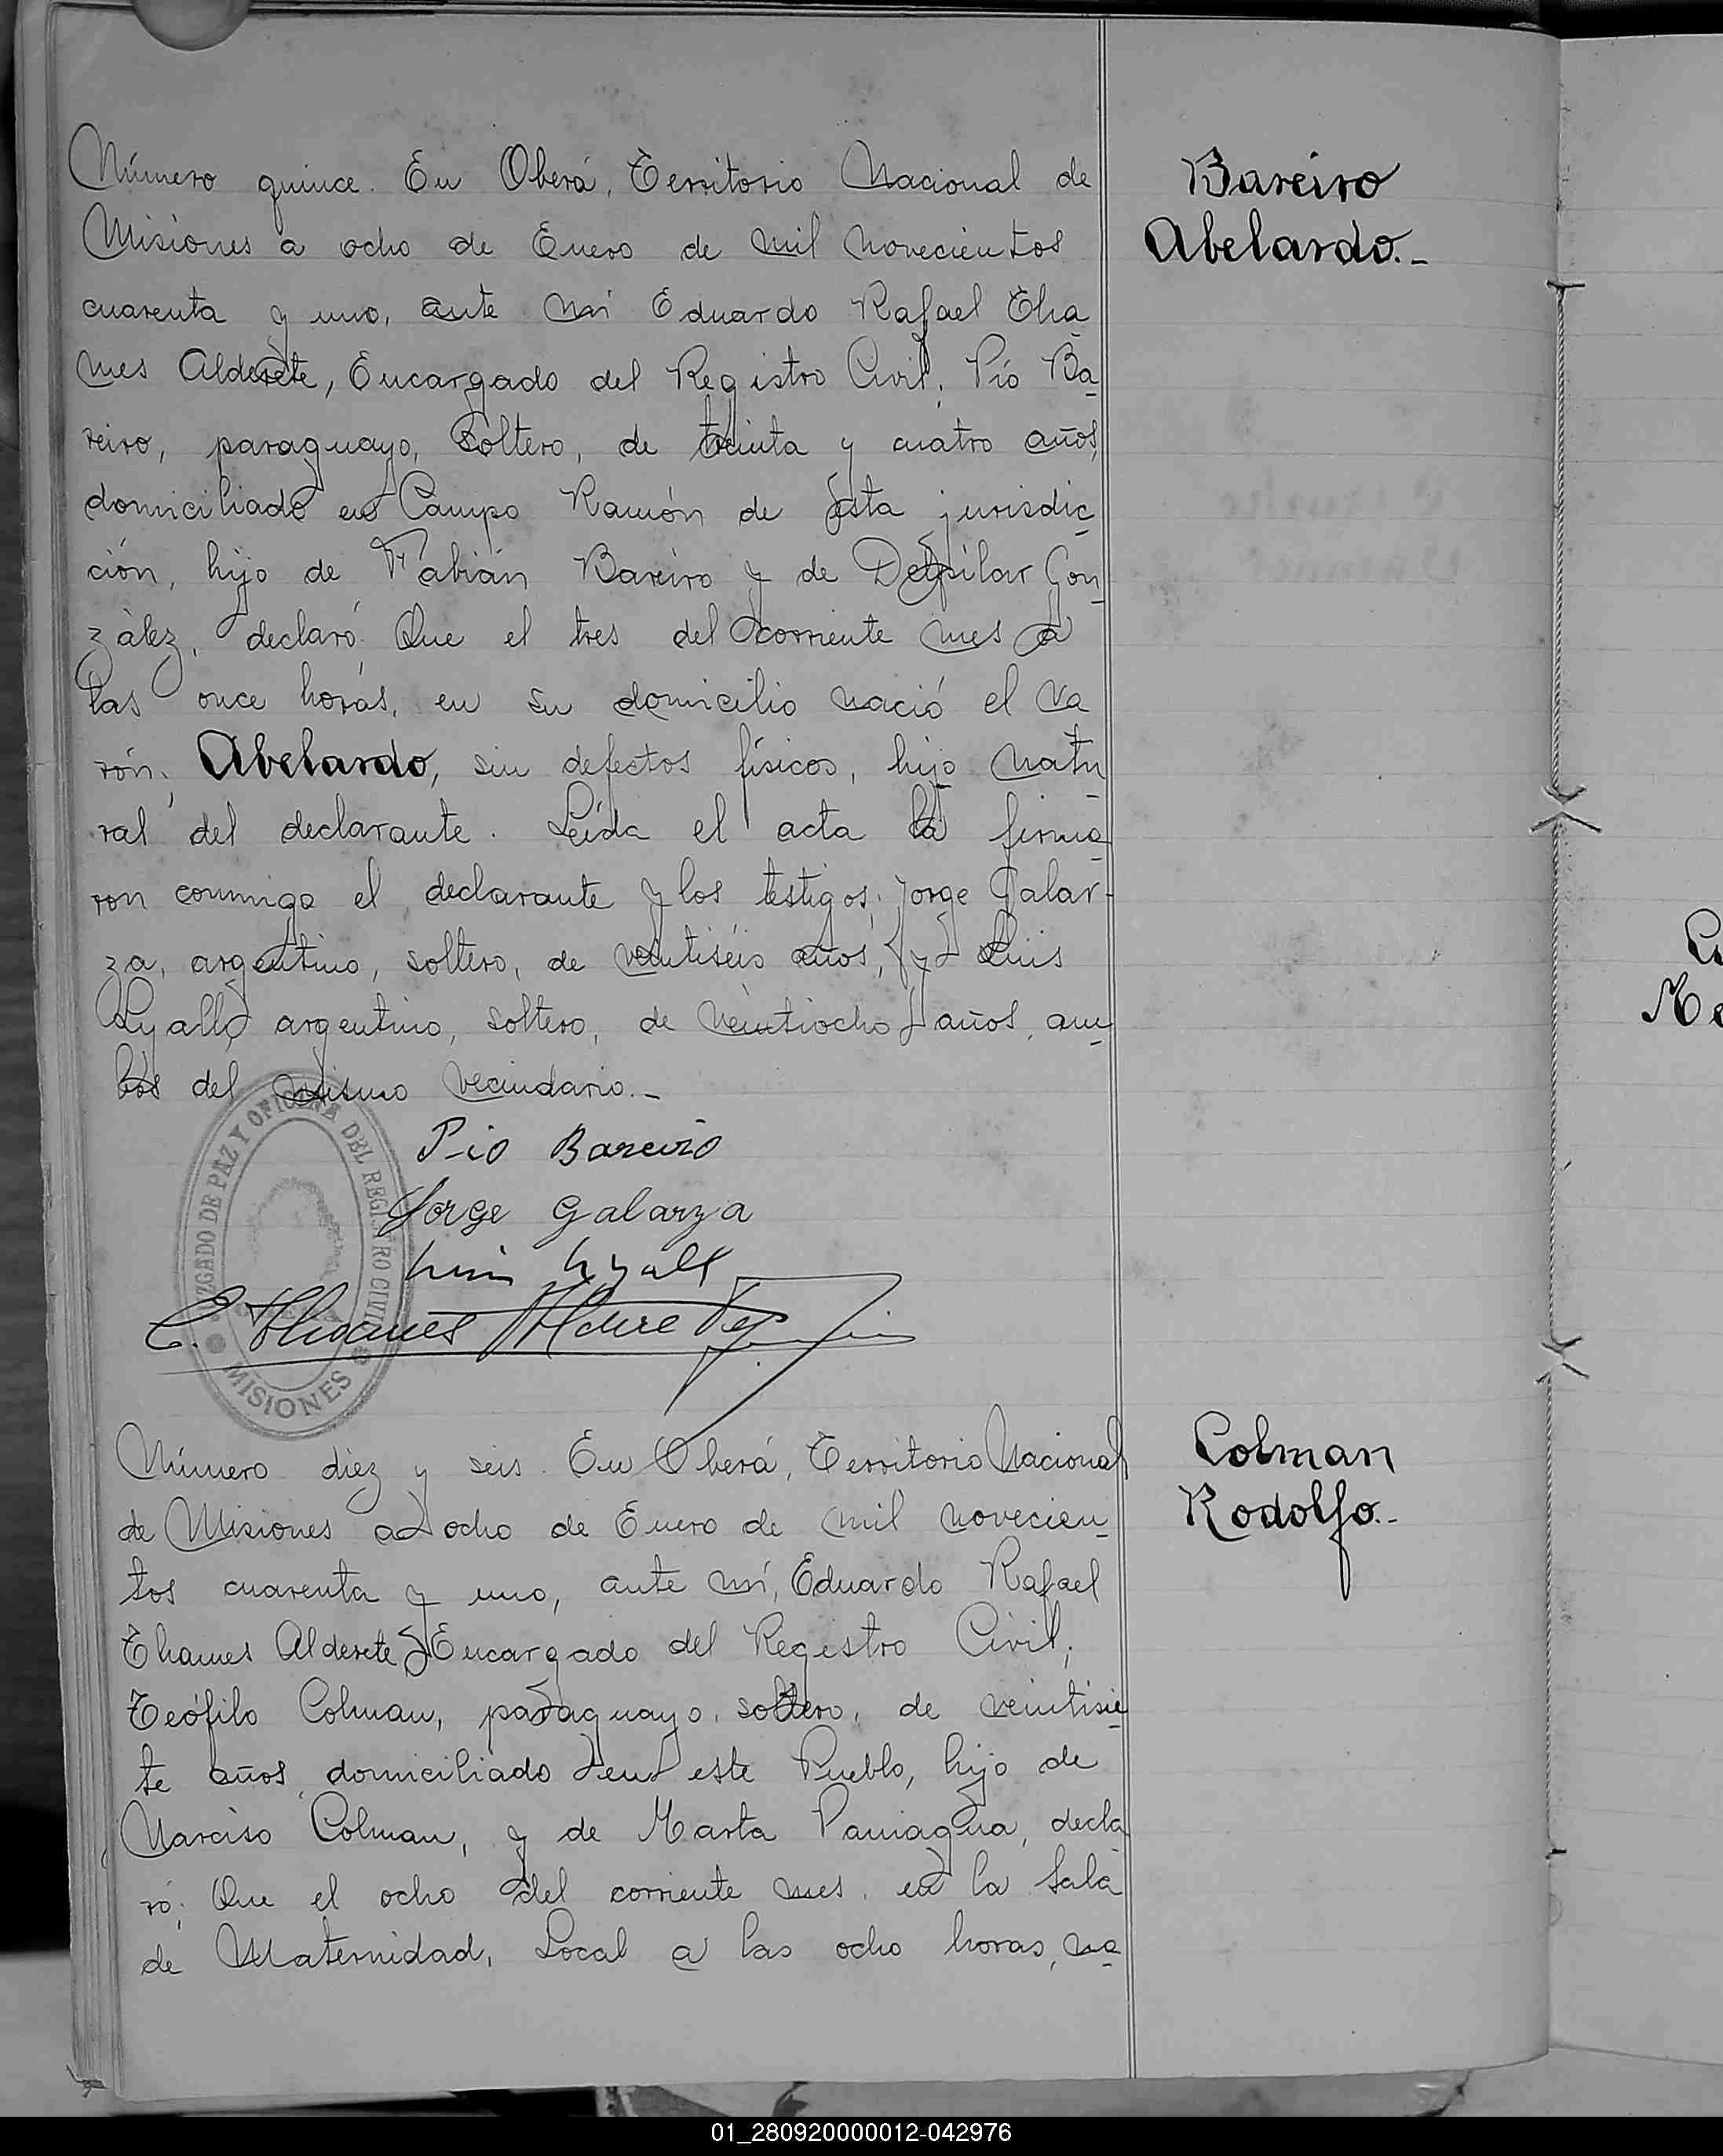 Número quince. En Oberá, Territorio Nacional de
Misiones a ocho de Enero de mil novecientos
cuarenta y uno, ante mí Eduardo Rafael Tha
mes Alderete, Encargado del Registro Civil; Pío Ba
reiro, paraguayo, soltero, de treinta y cuatro años,
domiciliado en Campo Ramón de ésta jurisdic
ción, hijo de Fabián Bareiro y de Delpilar Gon
zález, declaró: Que el tres del corriente mes a
las once horas, en su domicilio nació el va
rón; Abelardo, sin defectos físicos, hijo natu
ral del declarante. Leída el acta la firma
ron conmigo el declarante y los testigos; Jorge Galar-
za, argentino, soltero, de veintiséis años, y Luis
Lyall, argentino, soltero, de veintiocho años, am
bos del mismo vecindario.-
Pio Bareiro
Jorge Galarza
Luis Lyall
E. Thames Alderete
JUZGADO DE PAZ Y OFICINA DEL REGISTRO CIVIL
MISIONES
Bareiro
Abelardo.-
Número diez y seis. En Oberá, Territorio Nacional
de Misiones a ocho de Enero de mil novecien
tos cuarenta y uno, ante mí, Eduardo Rafael
Thames Alderete, Encargado del Registro Civil;
Teófilo Colman, paraguayo, soltero, de veintisie
te años, domiciliado en este Pueblo, hijo de
Narciso Colman, y de Marta Paniagua, decla
ró; Que el ocho del corriente mes, en la Sala
de Maternidad, Local a las ocho horas, na
Colman
Rodolfo.-
01_280920000012-042976